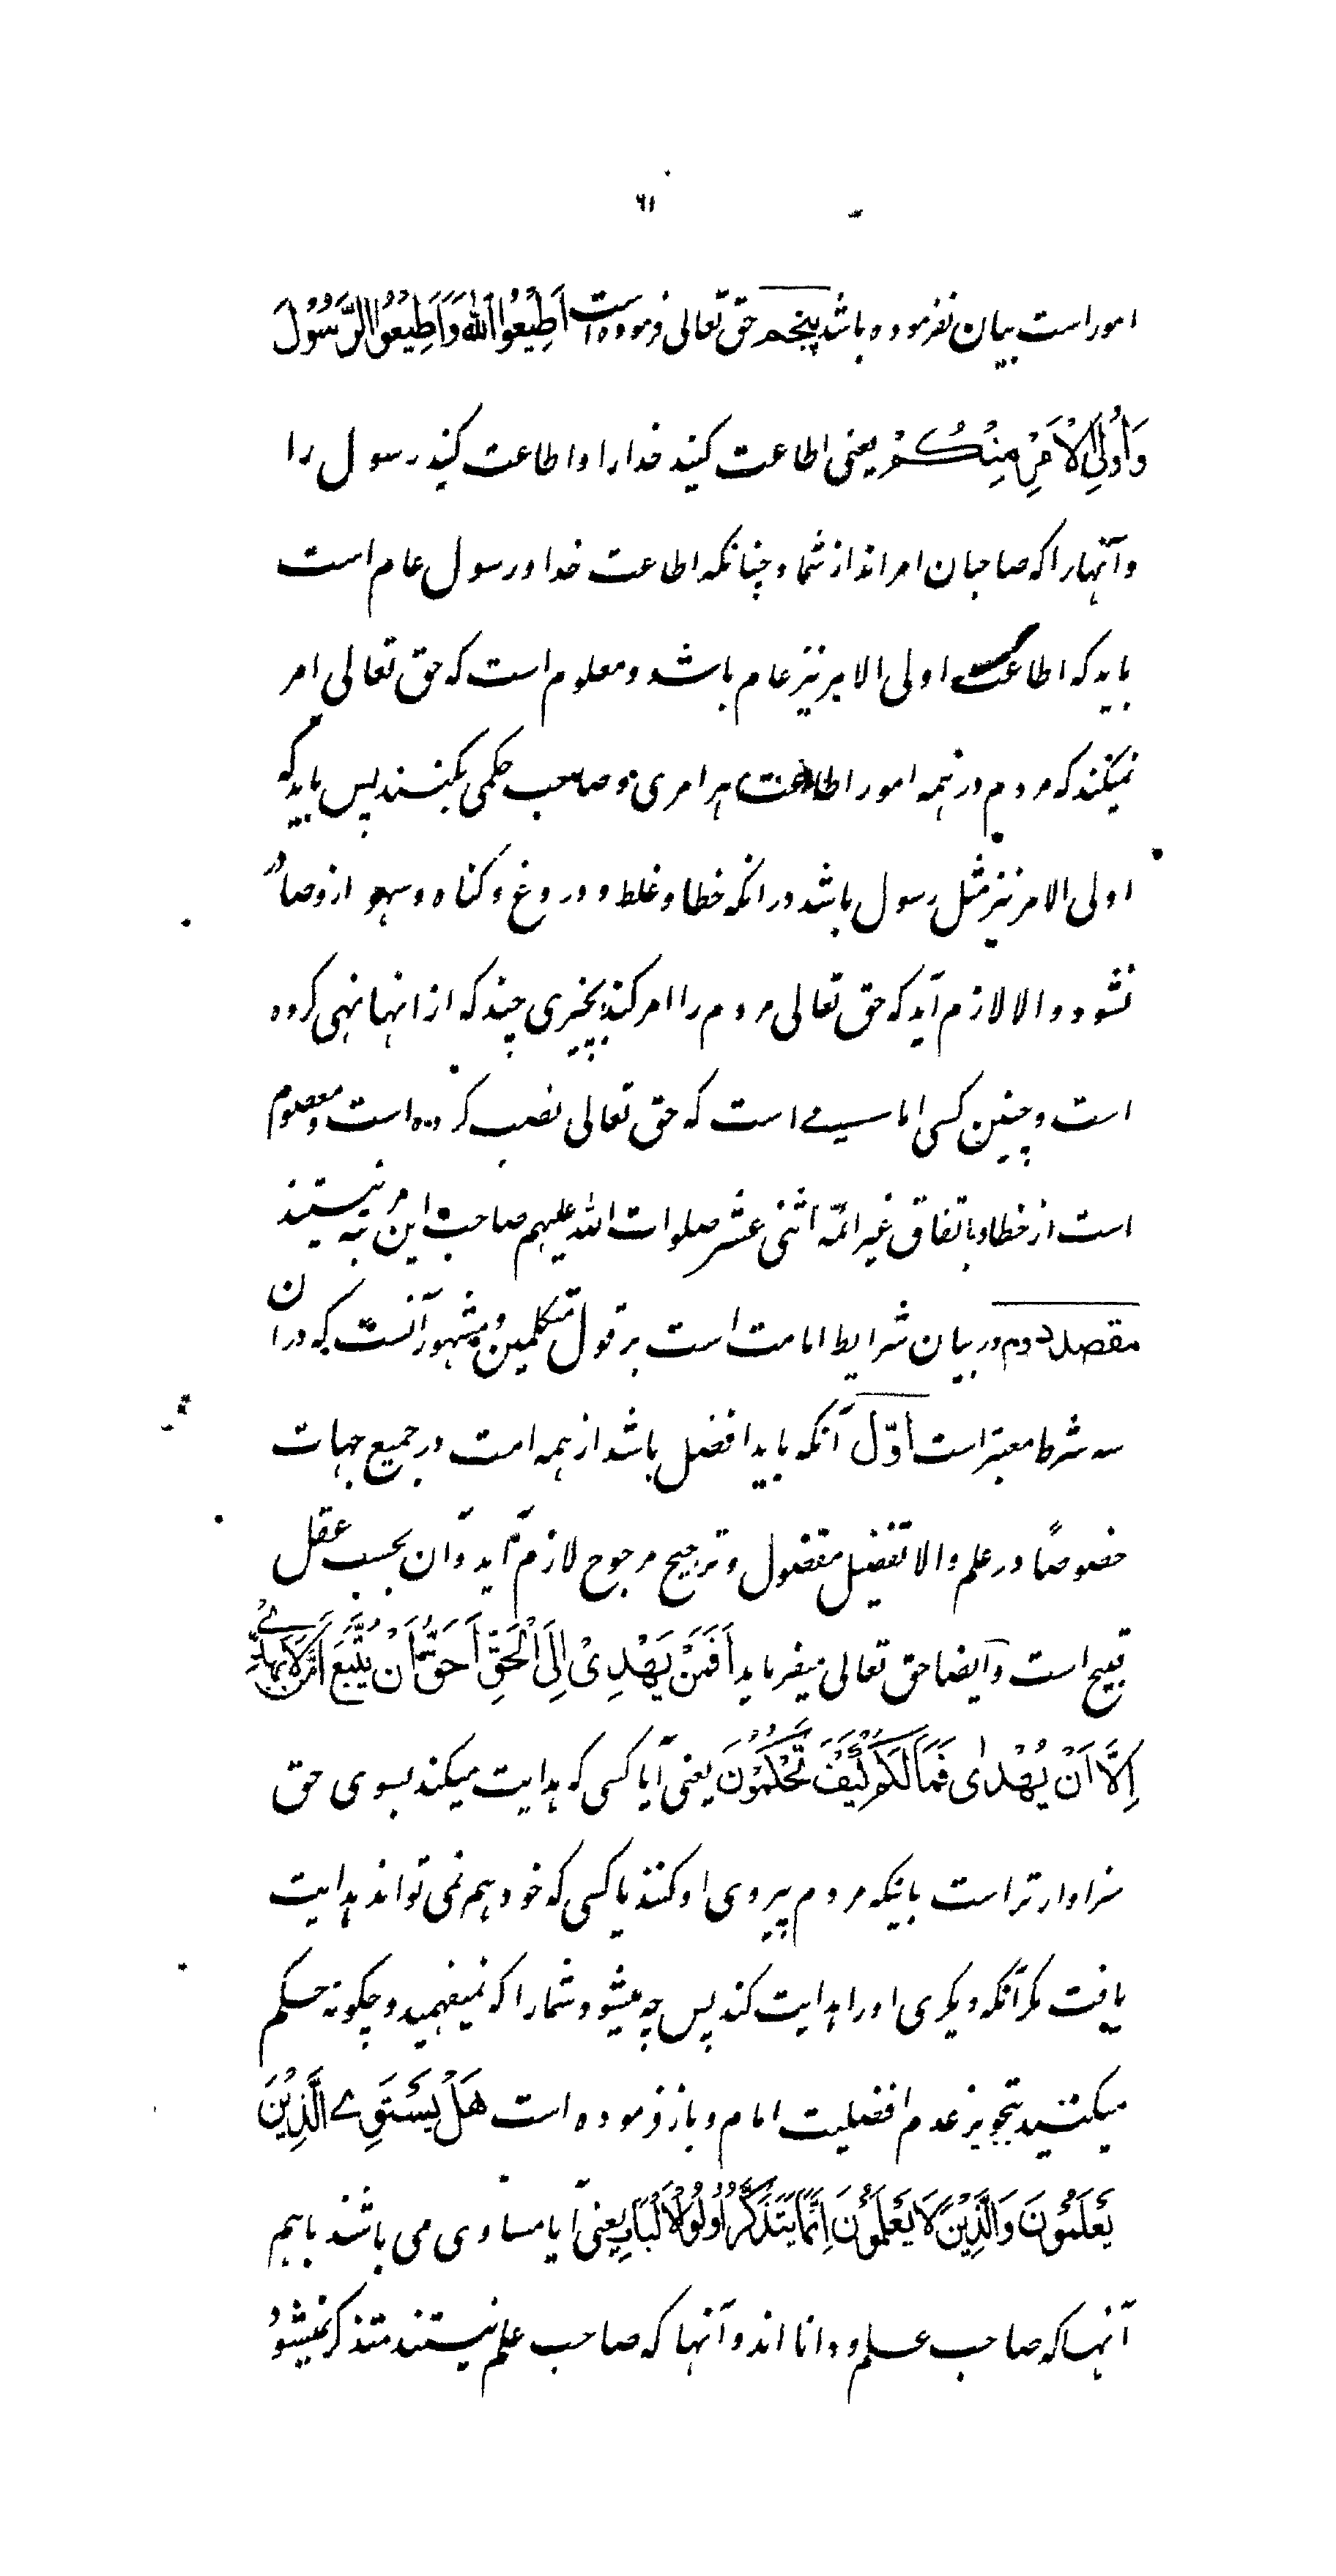 ٦١
امور است بیان نفرموده باشد پنجم حق تعالی فرموده است اَطِیْعُوا اللهَ وَاَطِیْعُوا الرَّسُوْلَ
وَاُولِی الْاَمْرِ مِنْکُمْ یعنی اطاعت کنید خدا را و اطاعت کنید رسول را
و آنها را که صاحبان امر اند از شما و چنانکه اطاعت خدا و رسول عام است
باید که اطاعت اولی الامر نیز عام باشد و معلوم است که حق تعالی امر
نمیکند که مردم در همه امور اطاعت هر امری و صاحب حکمی بکنند پس باید که
اولی الامر نیز مثل رسول باشد در انکه خطا و غلط و دروغ و کناه و سهو ازو صادر
نشود و الا لازم آید که حق تعالی مردم را امر کند بچیزی چند که از انها نهی کرده
است و چنین کسی امامی است که حق تعالی نصب کرده است و معصوم
است از خطا و باتفاق غیر ائمّه اثنی عشر صلوات الله علیهم صاحب این مرتبه نیستند
مقصد دوم در بیان شرایط امامت است بر قول متکلمین و مشهور آنست که در ان
سه شرط معتبر است اوّل آنکه باید افضل باشد از همه امت در جمیع جهات
خصوصًا در علم و الا تفضیل مفضول و ترجیح مرجوح لازم آید و آن بحسب عقل
قبیح است و ایضا حق تعالی میفرماید اَفَمَنْ یَهْدِیْ اِلَی الْحَقِّ اَحَقُّ اَنْ یُتَّبَعَ اَمَّنْ لَا یَهِدِّیْ
اِلَّا اَنْ یُهْدٰی فَمَا لَکُمْ کَیْفَ تَحْکُمُوْنَ یعنی آیا کسی که هدایت میکند بسوی حق
سزاوارتر است باینکه مردم پیروی او کنند یا کسی که خود هم نمی تواند هدایت
یافت مکر آنکه دیکری او را هدایت کند پس چه میشود شما را که نمیفهمید و چکونه حکم
میکنید بتجویز عدم افضلیت امام و باز فرموده است هَلْ یَسْتَوِی الَّذِیْنَ
یَعْلَمُوْنَ وَالَّذِیْنَ لَا یَعْلَمُوْنَ اِنَّمَا یَتَذَکَّرُ اُولُوا الْاَلْبَابِ یعنی آیا مساوی می باشند باهم
آنها که صاحب علم و دانا اند و آنها که صاحب علم نیستند متذکر نمیشود